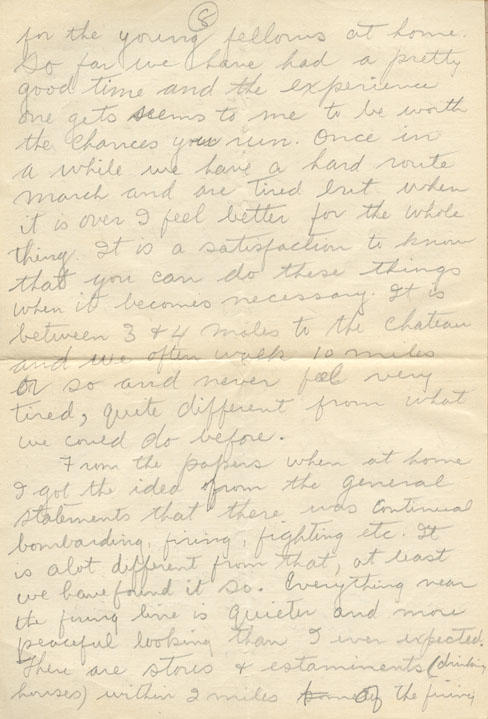 8
for the young fellows at home.
So far we have had a pretty
good time and the experience
one gets seems to me to be worth
the chances you run. Once in
a while we have a hard route
march and are tired but when
it is over I feel better for the whole
thing. It is a satisfaction to know
that you can do these things
when it becomes necessary. It is
between 3 & 4 miles to the chateau
and we often walk 10 miles
or so and never feel very
tired, quite different from what
we could do before.
From the papers when at home
I got the idea from the general
statements that there was continual
bombarding, firing, fighting etc. It
is alot different from that, at least
we have found it so. Everything near
the firing line is quieter and more
peaceful looking than I ever expected.
There are stores & estaminents (drinking
houses) within 2 miles of the firing